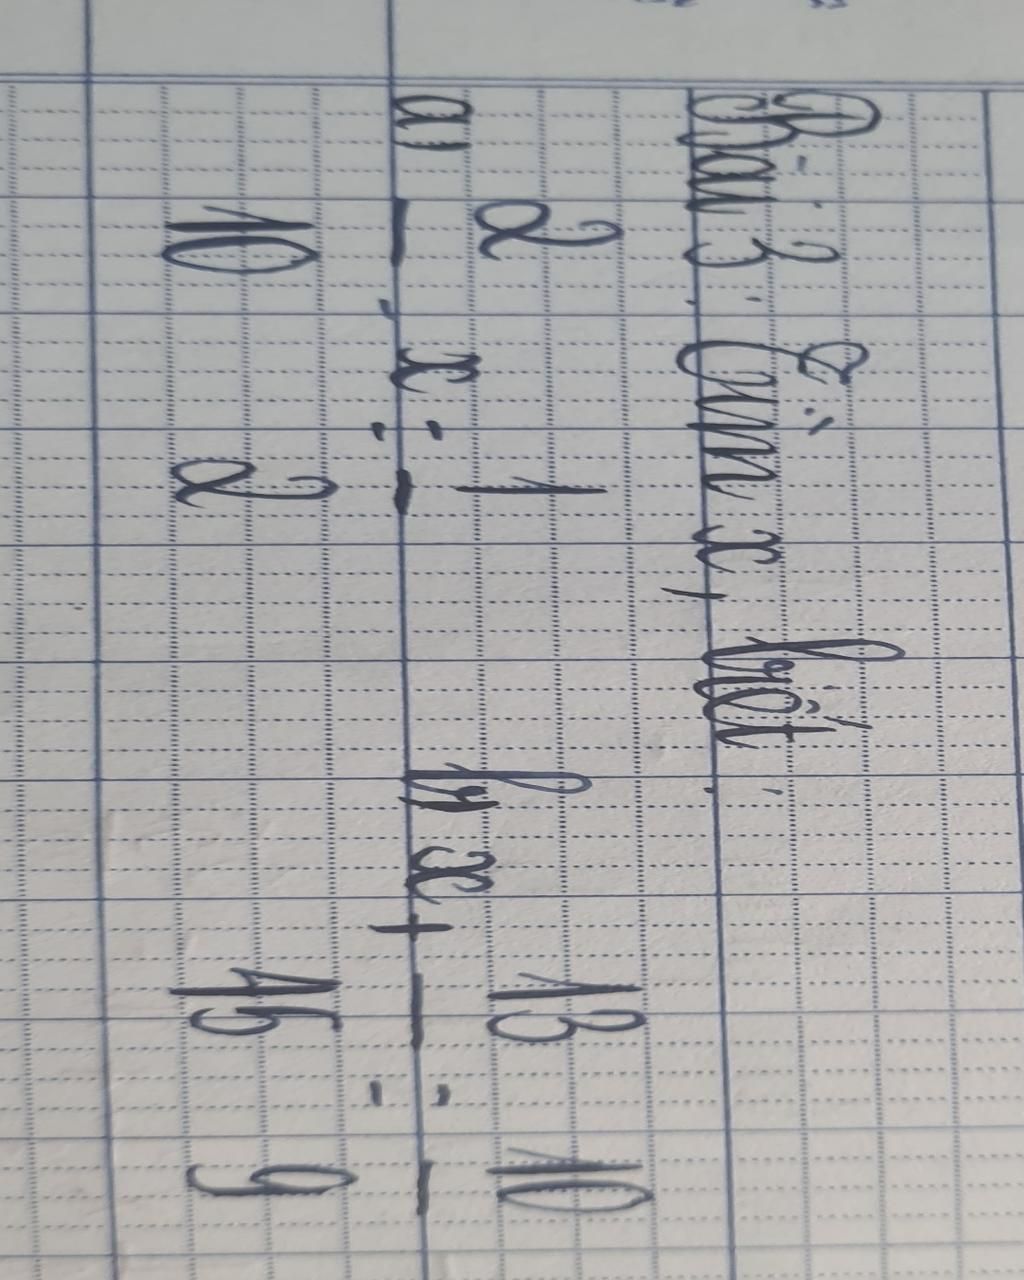 Bài 3: Tìm x, biết:
a) 2/10 . x = 1/2 b) x + 13/15 = 10/9